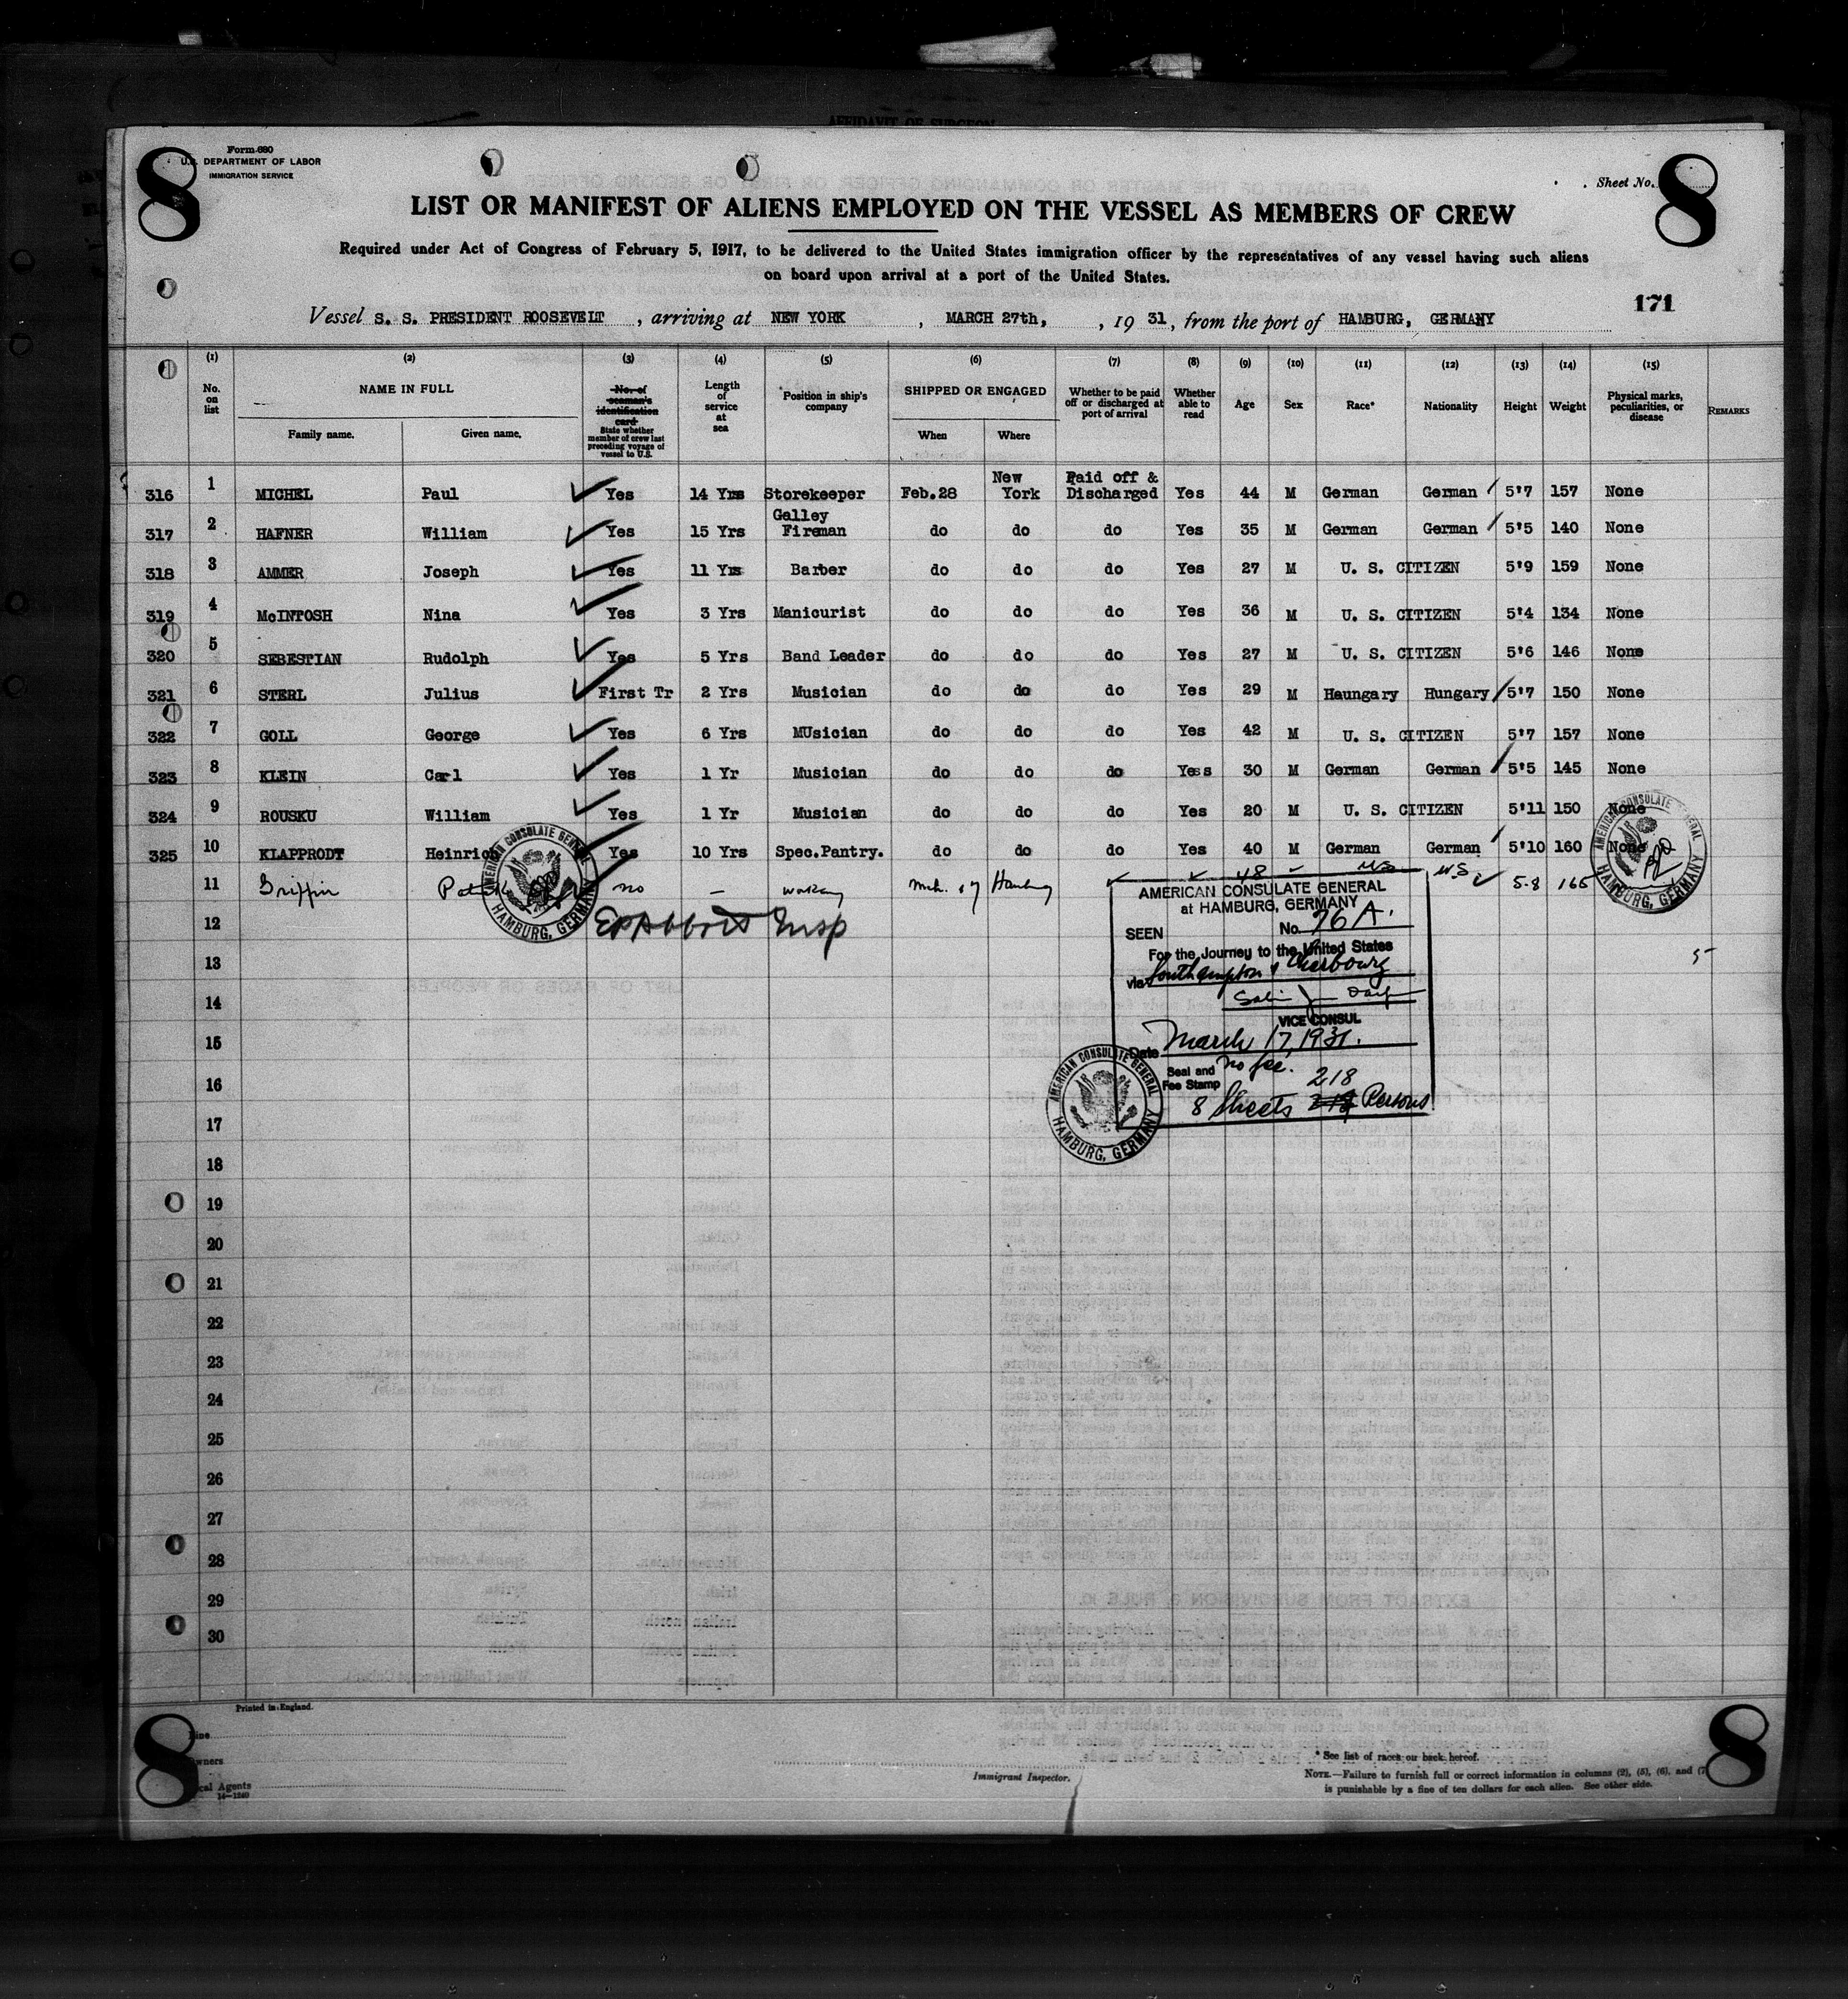 AFFIDAVIT OF SURGEON
8
Form 680
U.S. DEPARTMENT OF LABOR
IMMIGRATION SERVICE
Sheet No.
8
LIST OR MANIFEST OF ALIENS EMPLOYED ON THE VESSEL AS MEMBERS OF CREW
Required under Act of Congress of February 5, 1917, to be delivered to the United States immigration officer by the representatives of any vessel having such aliens
on board upon arrival at a port of the United States.
171
Vessel S. S. PRESIDENT ROOSEVELT, arriving at NEW YORK, MARCH 27th, , 19 31, from the port of HAMBURG, GERMANY
(1) (2) (3) (4) (5) (6) (7) (8) (9) (10) (11) (12) (13) (14) (15)
No. on list
NAME IN FULL
Family name. Given name.
No. of seaman's identification card
State whether member of crew last preceding voyage of vessel to U.S.
Length of service at sea
Position in ship's company
SHIPPED OR ENGAGED
When Where
Whether to be paid off or discharged at port of arrival
Whether able to read
Age
Sex
Race*
Nationality
Height
Weight
Physical marks, peculiarities, or disease
REMARKS
316 1 MICHEL Paul Yes 14 Yrs Storekeeper Feb.28 New York Paid off & Discharged Yes 44 M German German 5'7 157 None
317 2 HAFNER William Yes 15 Yrs Galley Fireman do do do Yes 35 M German German 5'5 140 None
318 3 AMMER Joseph Yes 11 Yrs Barber do do do Yes 27 M U. S. CITIZEN 5'9 159 None
319 4 McINTOSH Nina Yes 3 Yrs Manicurist do do do Yes 36 M U. S. CITIZEN 5'4 134 None
320 5 SEBESTIAN Rudolph Yes 5 Yrs Band Leader do do do Yes 27 M U. S. CITIZEN 5'6 146 None
321 6 STERL Julius First Tr 2 Yrs Musician do do do Yes 29 M Haungary Hungary 5'7 150 None
322 7 GOLL George Yes 6 Yrs MUsician do do do Yes 42 M U. S. CITIZEN 5'7 157 None
323 8 KLEIN Carl Yes 1 Yr Musician do do do Yess 30 M German German 5'5 145 None
324 9 ROUSKU William Yes 1 Yr Musician do do do Yes 20 M U. S. CITIZEN 5'11 150 None
325 10 KLAPPRODT Heinrich Yes 10 Yrs Spec.Pantry. do do do Yes 40 M German German 5'10 160 None
11 Griffin no – workaway Mch. 17 Hamburg 48 U.S. U.S. 5-8 165
AMERICAN CONSULATE GENERAL HAMBURG, GERMANY
AMERICAN CONSULATE GENERAL HAMBURG, GERMANY
12 Insp
AMERICAN CONSULATE GENERAL
at HAMBURG, GERMANY
SEEN No. 76 A.
For the Journey to the United States
via Southampton & Cherbourg
VICE CONSUL
Date March 17, 1931.
Seal and Fee Stamp No fee.
218
8 Sheets Persons
AMERICAN CONSULATE GENERAL HAMBURG, GERMANY
13
14
15
16
17
18
19
20
21
22
23
24
25
26
27
28
29
30
Printed in England.
8
Line
Owners
Local Agents
14—1240
Immigrant Inspector.
* See list of races on back hereof.
NOTE.—Failure to furnish full or correct information in columns (2), (5), (6), and (7)
is punishable by a fine of ten dollars for each alien. See other side.
8